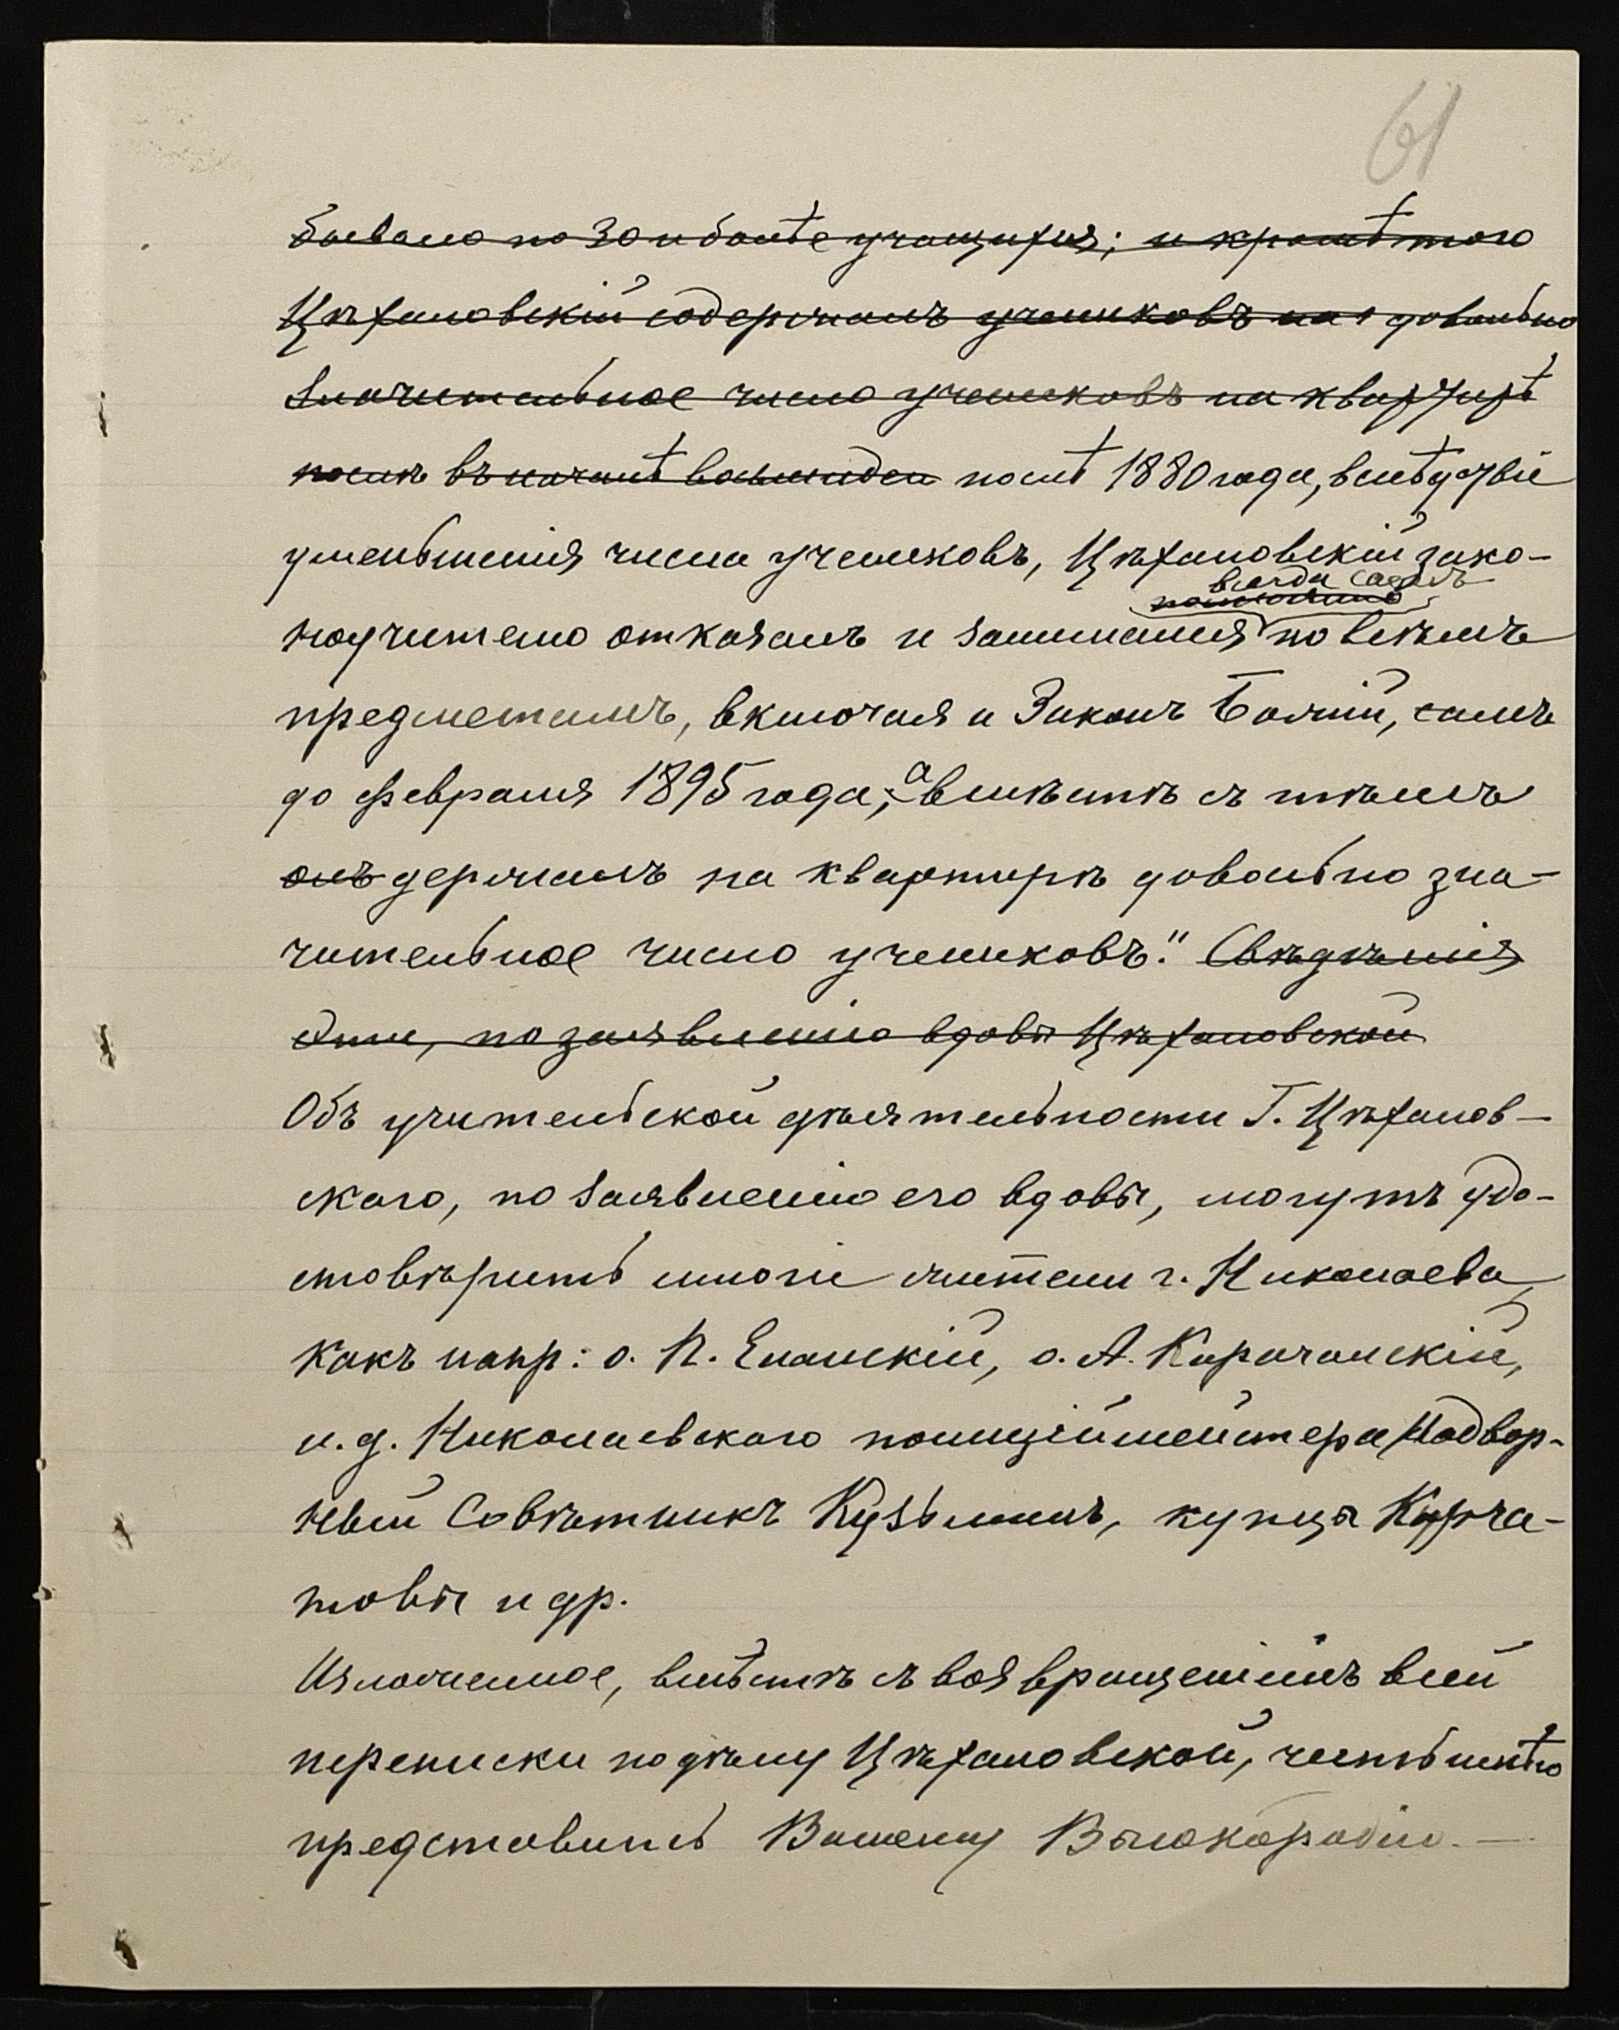 61
бывало по 30 и болѣе учащихся; и кромѣ того
Цѣхановскій содержалъ учениковъ на довольно
значительное число учениковъ на квартирѣ
послѣ въ началѣ восьмидес послѣ 1880 года, вслѣдствіе
уменьшенія числа учениковъ, Цѣхановскій зако-
всегда самъ
ноучителю отказалъ и занимался по всѣмъ
предметамъ, включая и Законъ Божій, самъ
до февраля 1895 года; а вмѣстѣ съ тѣмъ
онъ держалъ на квартирѣ довольно зна-
чительное число учениковъ." Свѣдѣнія
эти, по заявленію вдовы Цѣхановской
Объ учительской дѣятельности Г. Цѣханов-
скаго, по заявленію его вдовы, могутъ удо-
стовѣрить многіе жители г. Николаева,
какъ напр: о. П. Еланскій, о. А. Карачанскій,
и. д. Николаевскаго полиціймейстера Надвор-
ный Совѣтникъ Кузьминъ, купцы Курча-
товы и др.
Изложенное, вмѣстѣ съ возвращеніемъ всей
переписки по дѣлу Цѣхановской, честь имѣю
представить Вашему Высокородію. —